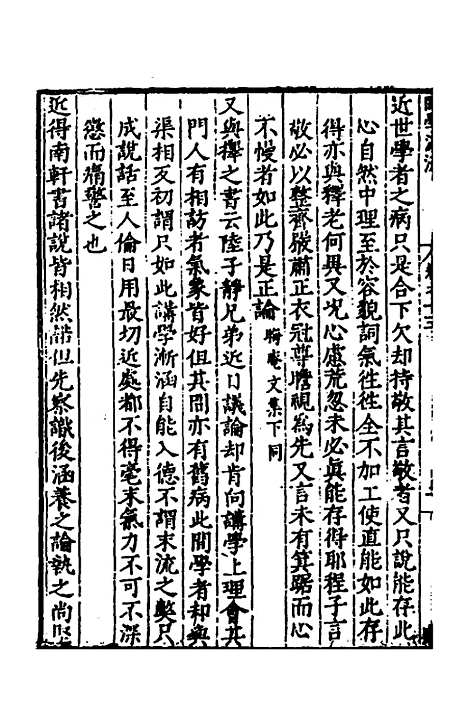 近世學者之病只是合下欠却持敬其言敬者又只說能存此
心自然中理至於容貌詞氣徃徃全不加工使直能如此存
得亦與釋老何異又况心慮荒忽未必眞能存得耶程子言
敬必以整齊嚴肅正衣冠尊瞻視爲先又言未有箕踞而心
不慢者如此乃是正論晦庵文集下同
又與擇之書云陸子靜兄弟近日議論却肯向講學上理會其
門人有相訪者氣象皆好但其間亦有舊病此間學者却與
渠相反初謂只如此講學漸涵自能入德不謂末流之弊只
成說話至人倫日用最切近處都不得毫末氣力不可不深
懲而痛警之也
近得南軒書諸說皆相然諾但先察識後涵養之論執之尚堅